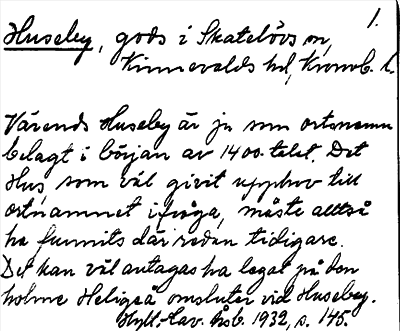 1.
Huseby, gods i Skatelövs sn,
Kinnevalds hd, Kronob. l.
Värends Huseby är ju som ortsnamn
belagt i början av 1400-talet. Det
Hus, som väl givit upphov till
ortnamnet ifråga, måste alltså
ha funnits där redan tidigare.
Det kan väl antagas ha legat på den
holme Helige å omsluter vid Huseby.
Hylt.-Cav. Årsb. 1932, s. 145.